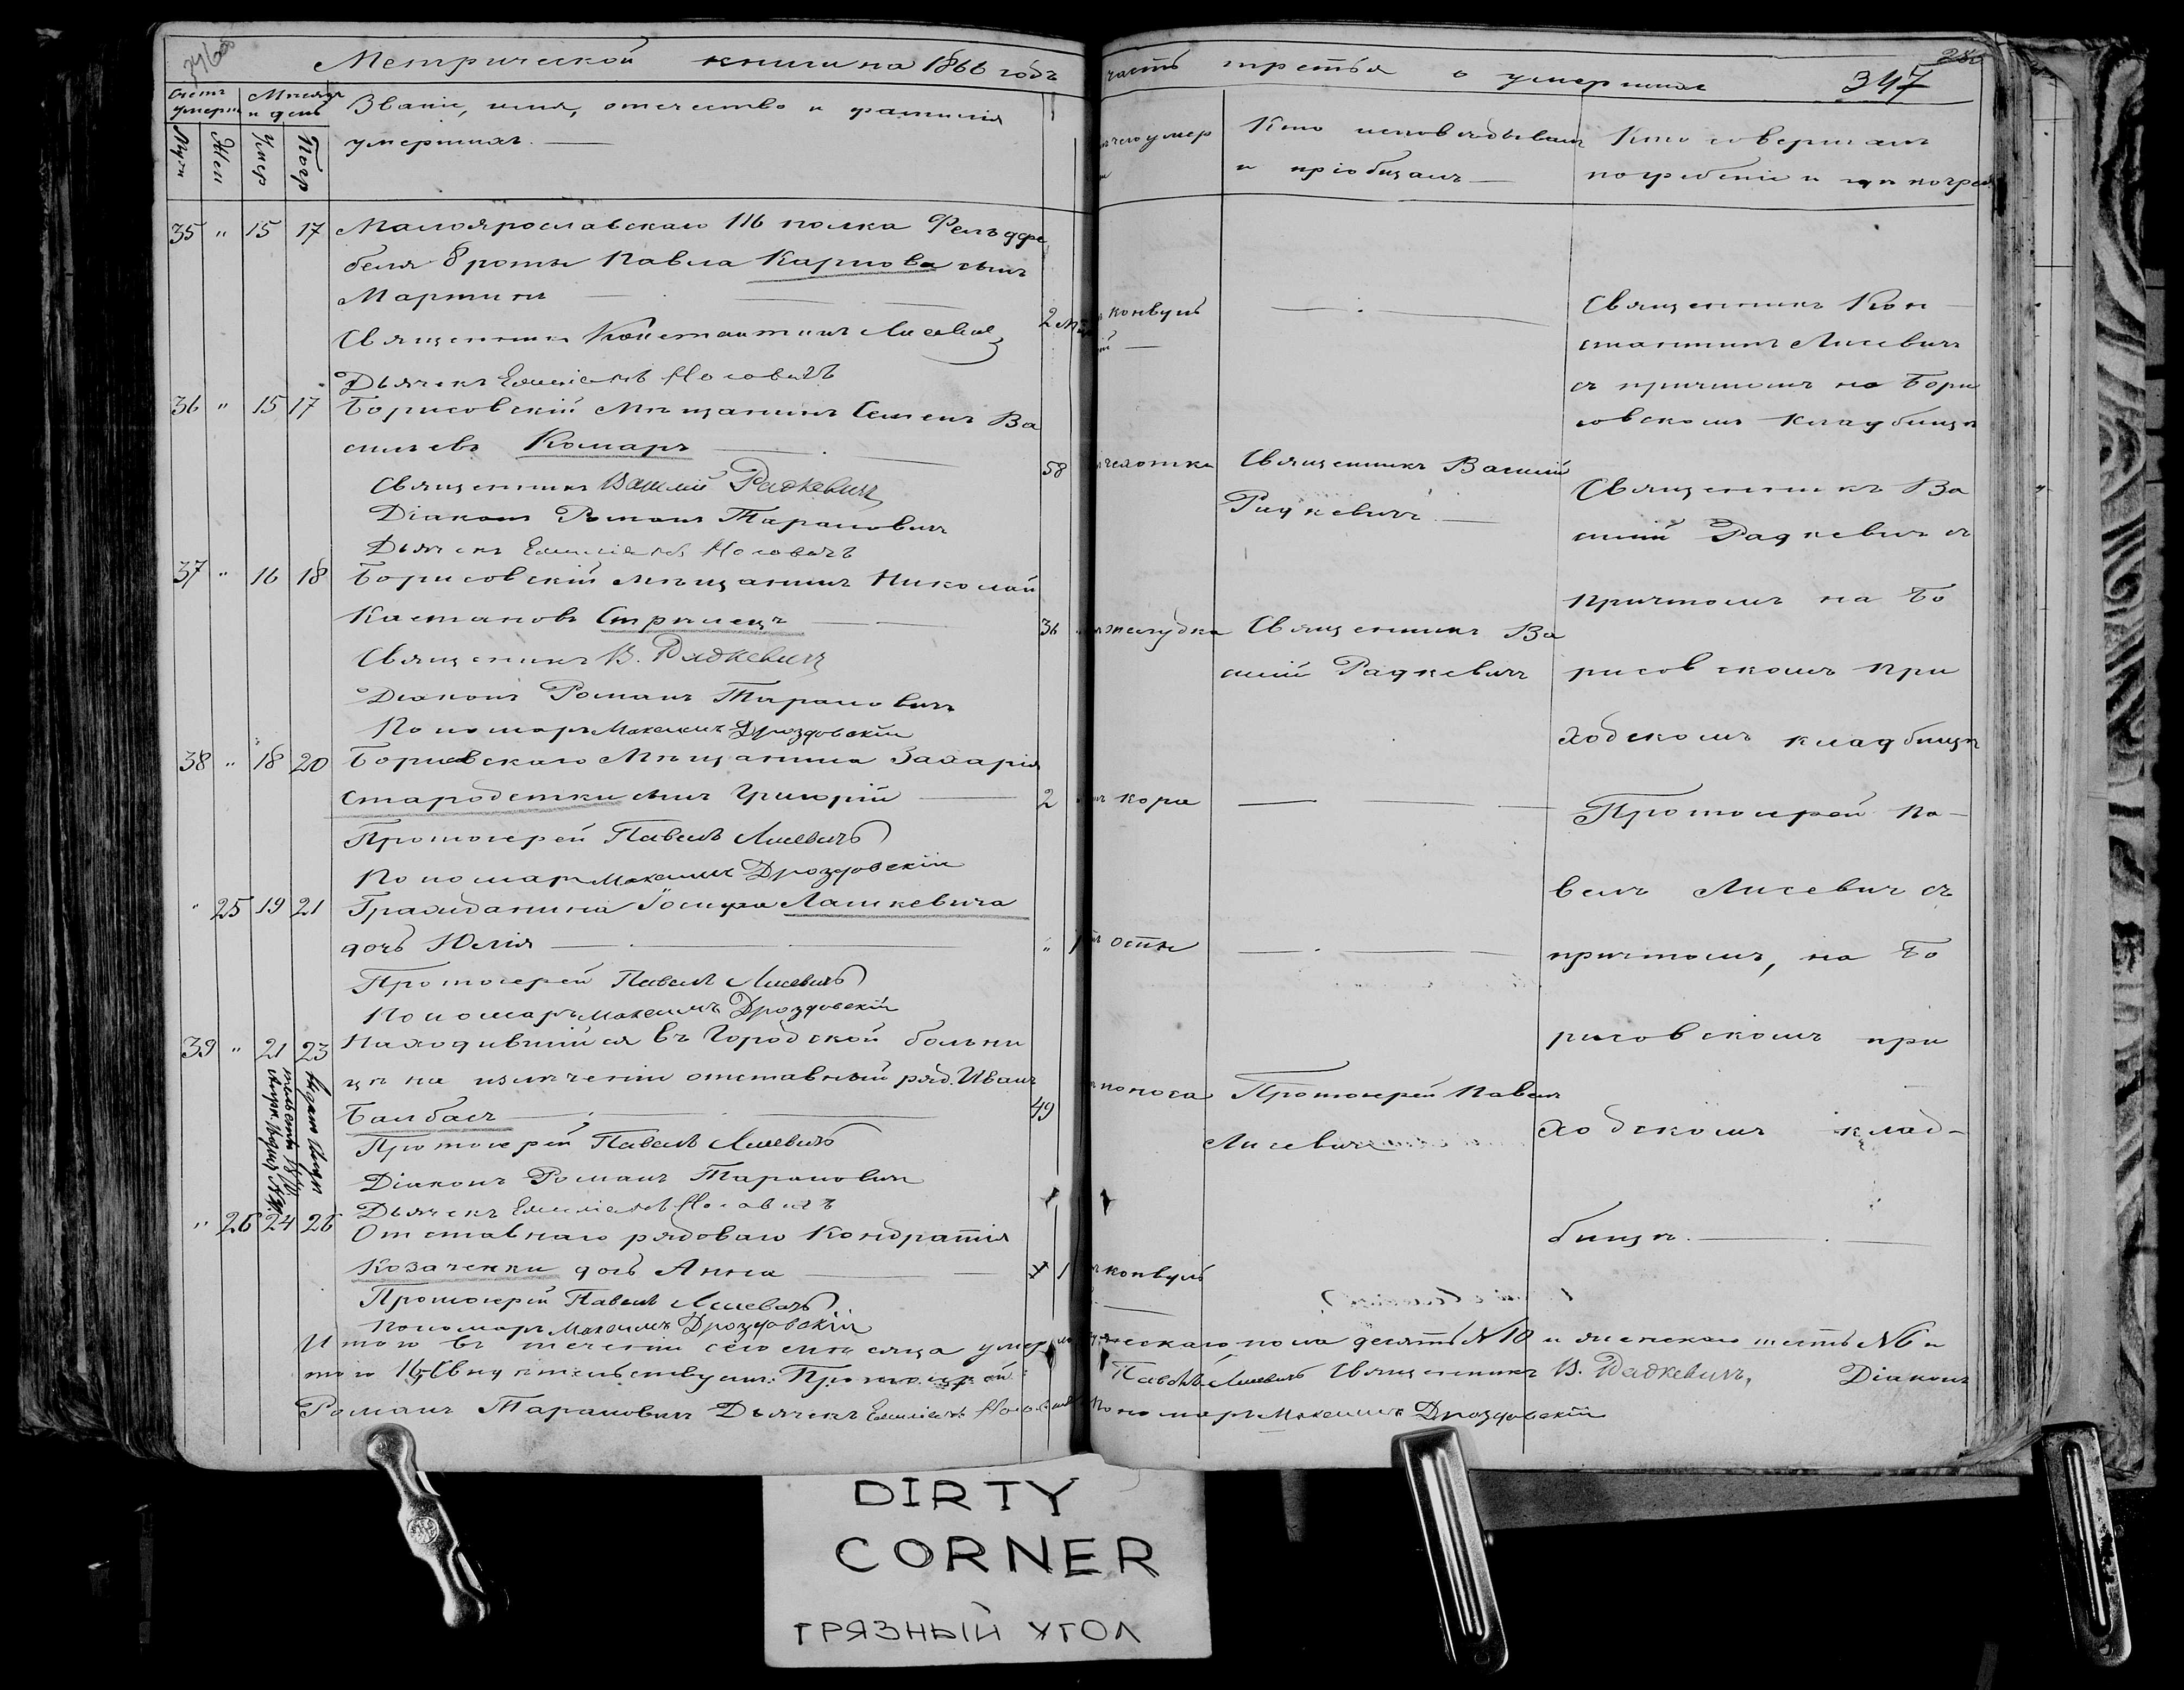 Метрической книги на 1866 годъ
Счетъ умерш
Мѣсяцъ и день
Званіе, имя, отечество и фамилія
умершихъ. —
Муж
Жен
Умер
Погр
35 " 15 17 Малоярославскаго 116 полка Фельдфе
беля 8 роты Павла Карпова сынъ
Мартинъ —
2
Священникъ Константинъ Лисевичъ
Дьячекъ Емиліанъ Носовичъ
36 " 15 17 Борисовскій Мѣщанинъ Семенъ Ва
сильевъ Комаръ —
58
Священникъ Василій Радкевичъ
Діаконъ Романъ Тарановичъ
Дьячекъ Емиліанъ Носовичъ
37 " 16 18 Борисовскій мѣщанинъ Николай
Кастановъ Стрилецъ —
36
Священникъ В. Радкевичъ
Діаконъ Романъ Тарановичъ
Пономарь Максимъ Дроздовскій
38 " 18 20 Борисовскаго Мѣщанина Захарія
Стародетки сынъ Григорій —
2
Протоіерей Павелъ Лисевичъ
Пономарь Максимъ Дроздовскій
" 25 19 21 Гражданина Іосифа Лашкевича
дочь Юлія —
" 1
Протоіерей Павелъ Лисевичъ
Пономарь Максимъ Дроздовскій
39 " 21 23 Находившійся въ Городской больни
цѣ на излеченіи отставный ряд. Иванъ
Балбасъ —
49
Протоіерей Павелъ Лисевичъ
Діаконъ Романъ Тарановичъ
Дьячекъ Емиліанъ Носовичъ
" 26 24 26 Отставнаго рядоваго Кондратія
Козаченки дочь Анна —
1
Протоіерей Павелъ Лисевичъ
Пономарь Максимъ Дроздовскій
Итого въ теченіи сего мѣсяца умер
того 16, Свидѣтельствуемъ: Протоіерей
Романъ Тарановичъ Дьячекъ Емиліанъ
часть третья о умершихъ
347
чего умер
Кто исповѣдывалъ
и пріобщалъ —
Кто совершалъ
погребеніе и гдѣ погреб
конвуль
—
Священникъ Кон
стантинъ Лисевичъ
съ причтомъ на Бори
совскомъ кладбищѣ
чехотки
Священникъ Василій
Радкевичъ —
Священникъ Ва
силій Радкевичъ съ
причтомъ на Бо
рисовскомъ при
ходскомъ кладбищѣ
желудка
Священникъ Ва
силій Радкевичъ
кори
—
Протоіерей Па-
велъ Лисевичъ съ
причтомъ, на Бо
рисовскомъ при
ходскомъ клад-
бищѣ. —
оспы
—
поноса
Протоіерей Павелъ
Лисевичъ
конвуль
ческаго пола десять N 10 и женскаго шесть N 6 и
Павелъ Лисевичъ Священникъ В. Радкевичъ, Діаконъ
Пономарь Максимъ Дроздовскій
DIRTY
CORNER
ГРЯЗНЫЙ УГОЛ